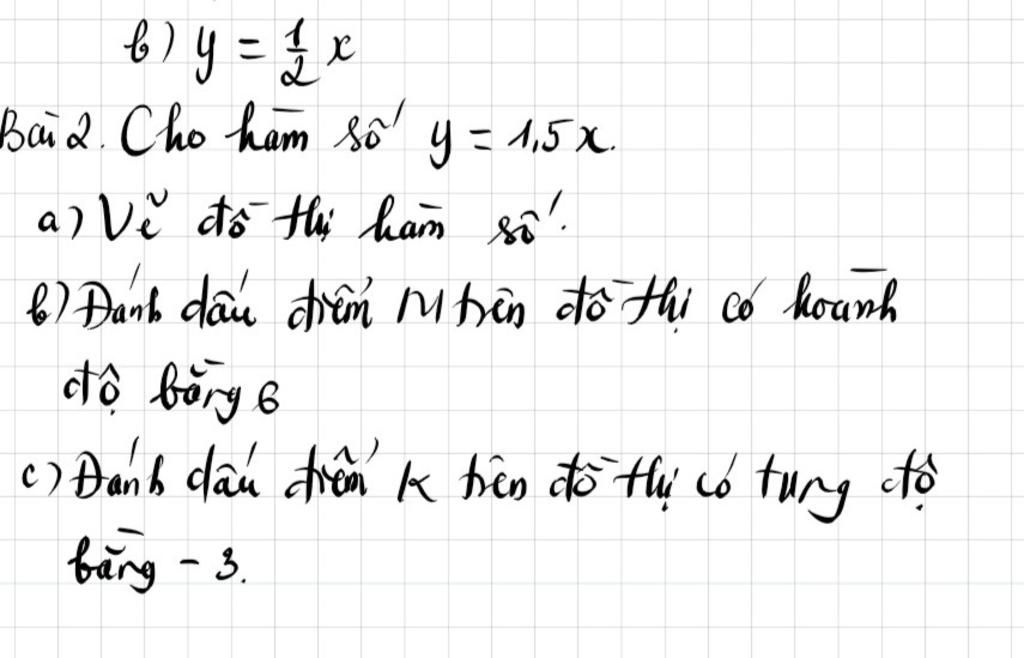 b) y = 1/2 x
Bài 2. Cho hàm số y = 1,5x.
a) Vẽ đồ thị hàm số.
b) Đánh dấu điểm M trên đồ thị có hoành
độ bằng 6
c) Đánh dấu điểm K trên đồ thị có tung độ
bằng - 3.